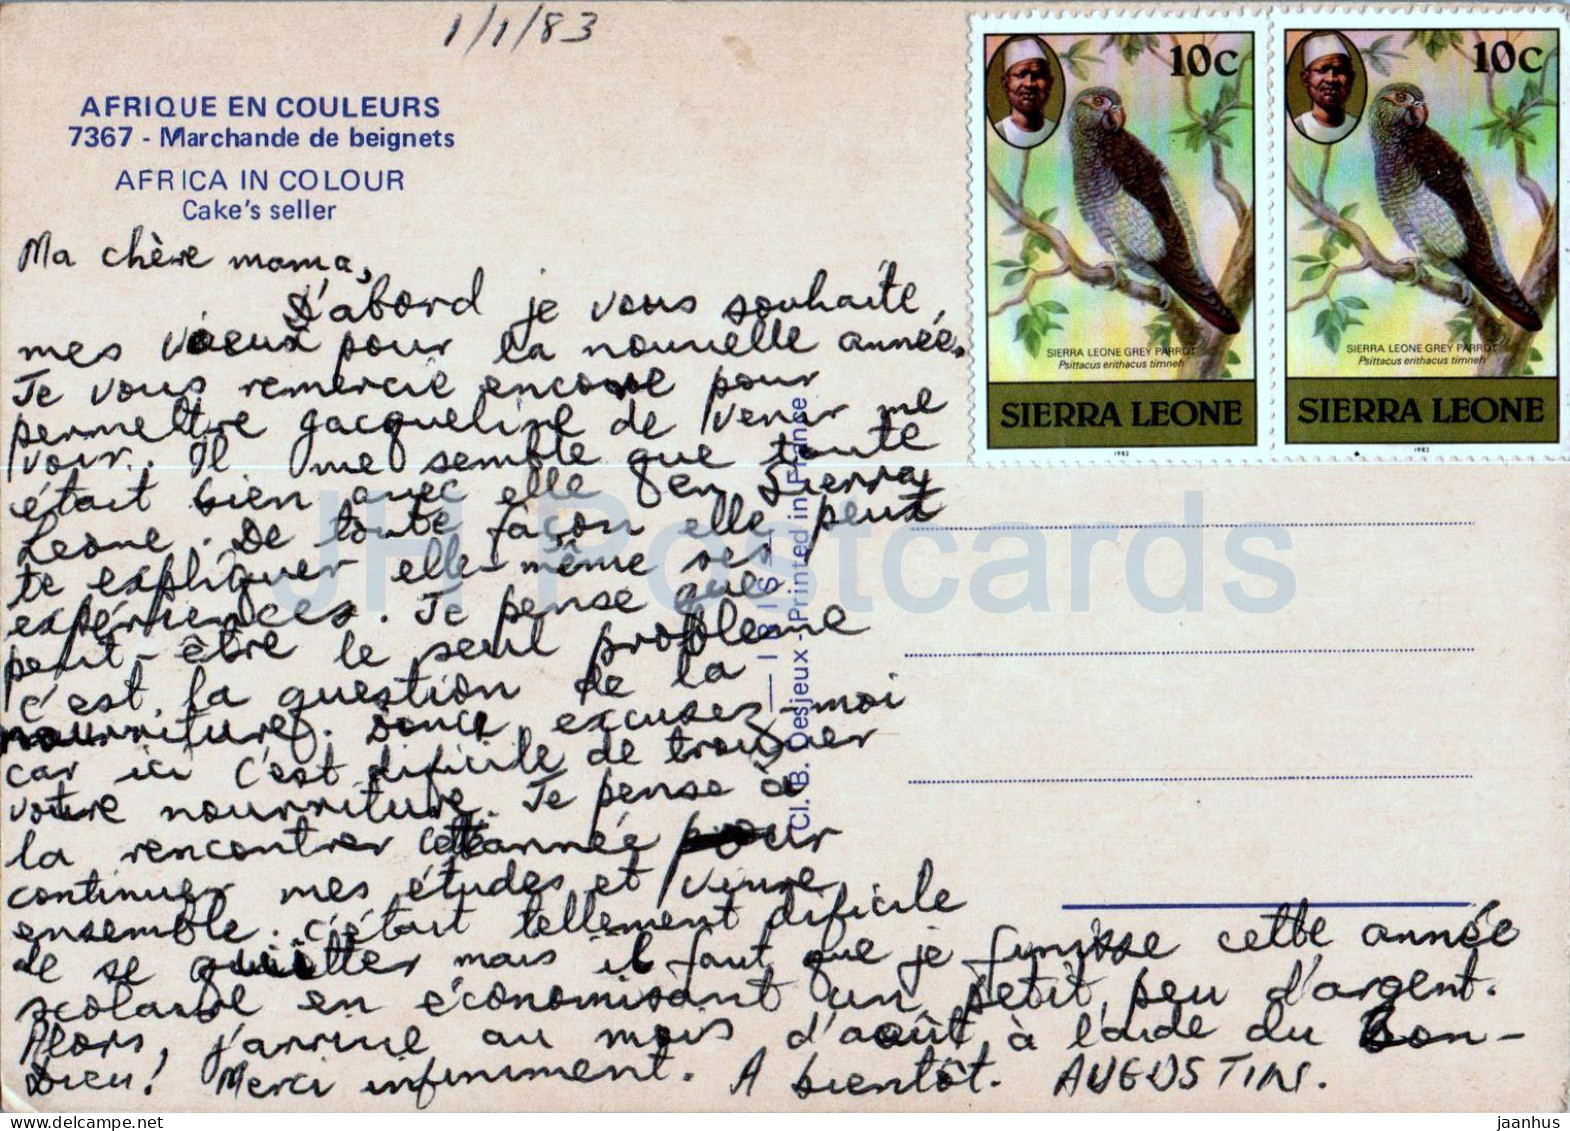 1/1/83
AFRIQUE EN COULEURS
7367 - Marchande de beignets
AFRICA IN COLOUR
Cake's seller
10c
SIERRA LEONE GREY PARROT
Psittacus erithacus timneh
SIERRA LEONE
1982
10c
SIERRA LEONE GREY PARROT
Psittacus erithacus timneh
SIERRA LEONE
1982
Ma chère mama,
D'abord je vous souhaite,
mes voeux pour la nouvelle année.
Je vous remercie encore pour
permettre Jacqueline de venir me
voir. Il me semble que toute
était bien avec elle en Sierra
Leone. De toute façon elle peut
te expliquer elle-même ses
expériences. Je pense que
peut-être le seul problème
c'est la question de la
nourriture. Donc excusez-moi
car ici c'est dificile de trouver
votre nourriture. Je pense à
la rencontrer cette année pour
continuer mes études et vivre
ensemble. C'était tellement dificile
de se quitter mais il faut que je finisse cette année
scolaire en économisant un petit peu d'argent.
Alors, j'arrive au mois d'août à l'aide du Bon-
Dieu! Merci infiniment. A bientôt. AUGUSTIN.
IRIS
Cl. B. Desjeux - Printed in France
JH Postcards
jaanhus © delcampe.net